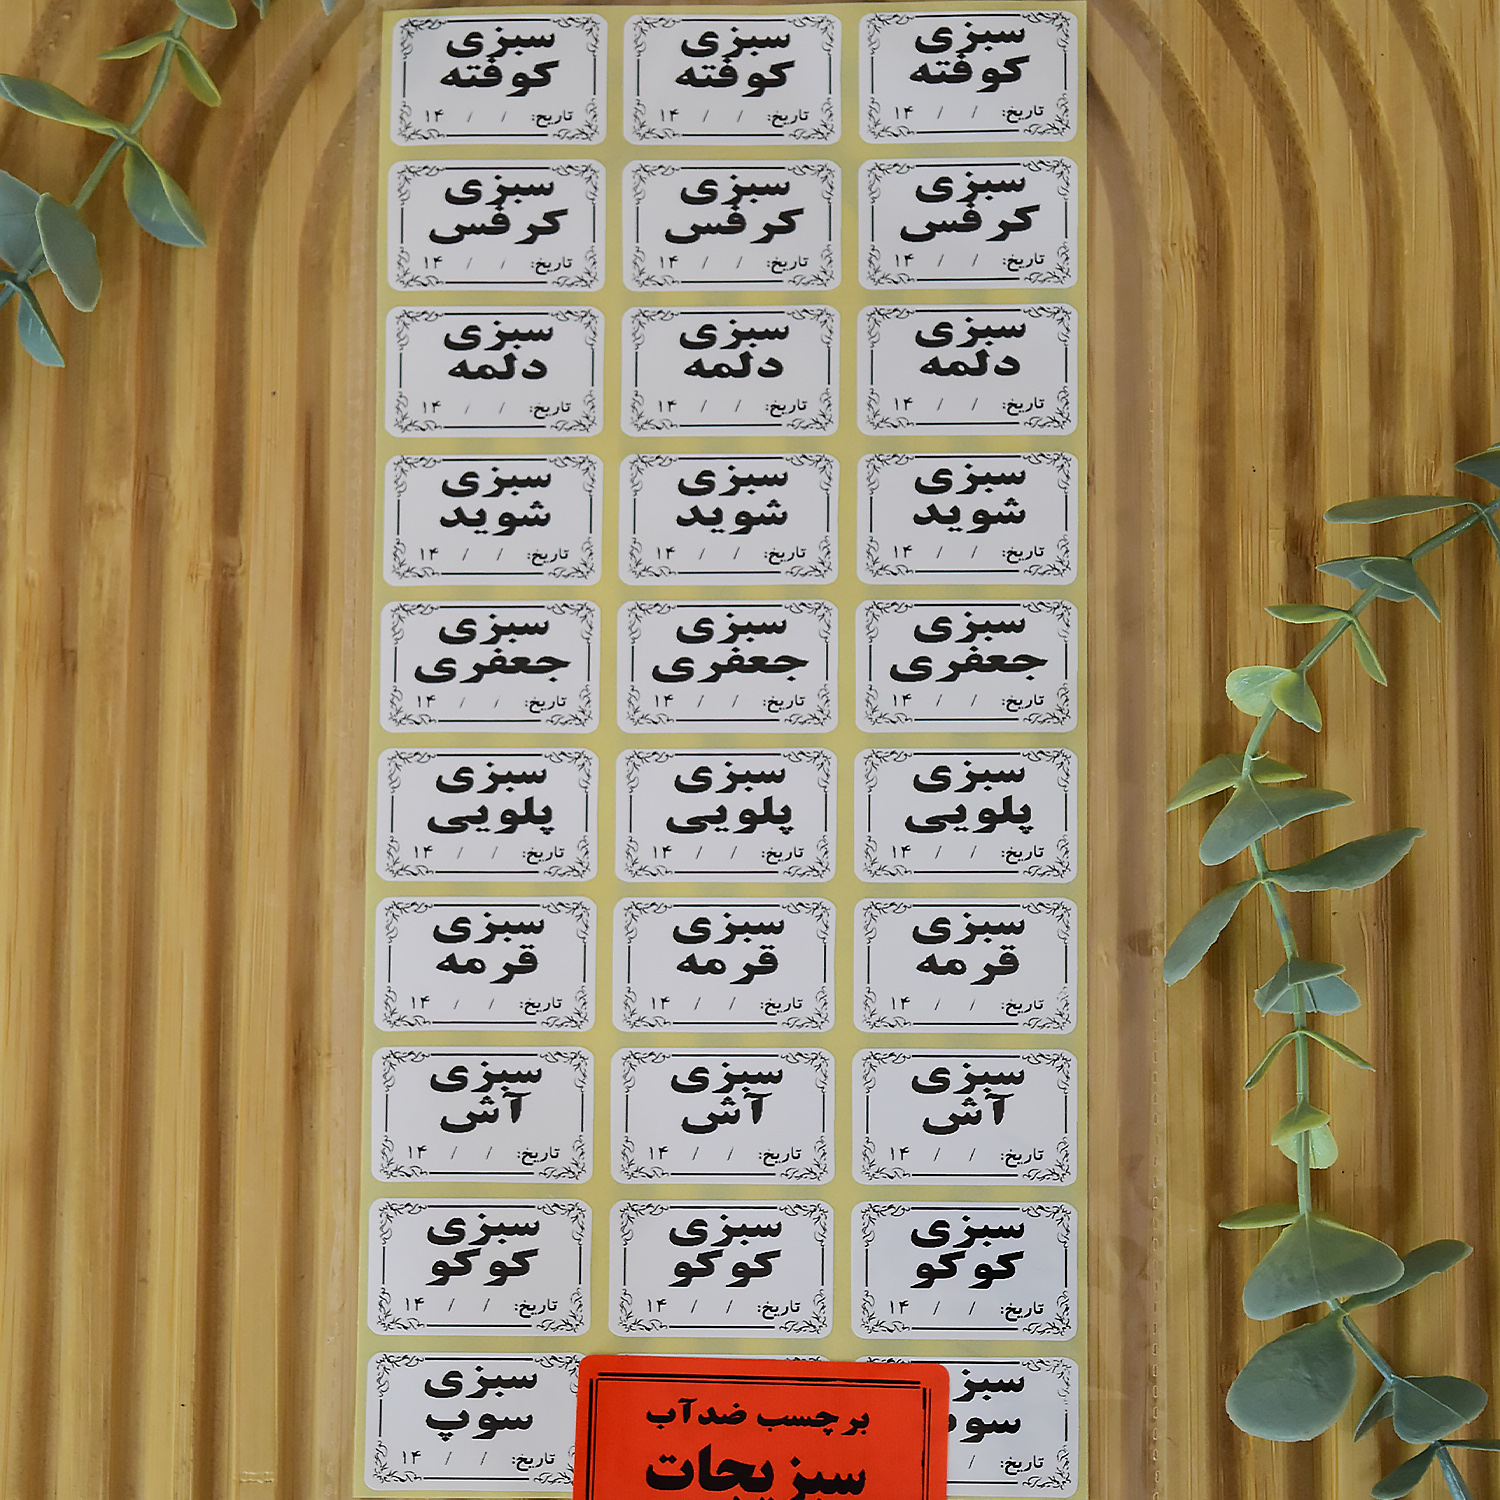 سبزی
کوفته
تاریخ: / / ۱۴
سبزی
کوفته
تاریخ: / / ۱۴
سبزی
کوفته
تاریخ: / / ۱۴
سبزی
کرفس
تاریخ: / / ۱۴
سبزی
کرفس
تاریخ: / / ۱۴
سبزی
کرفس
تاریخ: / / ۱۴
سبزی
دلمه
تاریخ: / / ۱۴
سبزی
دلمه
تاریخ: / / ۱۴
سبزی
دلمه
تاریخ: / / ۱۴
سبزی
شوید
تاریخ: / / ۱۴
سبزی
شوید
تاریخ: / / ۱۴
سبزی
شوید
تاریخ: / / ۱۴
سبزی
جعفری
تاریخ: / / ۱۴
سبزی
جعفری
تاریخ: / / ۱۴
سبزی
جعفری
تاریخ: / / ۱۴
سبزی
پلویی
تاریخ: / / ۱۴
سبزی
پلویی
تاریخ: / / ۱۴
سبزی
پلویی
تاریخ: / / ۱۴
سبزی
قرمه
تاریخ: / / ۱۴
سبزی
قرمه
تاریخ: / / ۱۴
سبزی
قرمه
تاریخ: / / ۱۴
سبزی
آش
تاریخ: / / ۱۴
سبزی
آش
تاریخ: / / ۱۴
سبزی
آش
تاریخ: / / ۱۴
سبزی
کوکو
تاریخ: / / ۱۴
سبزی
کوکو
تاریخ: / / ۱۴
سبزی
کوکو
تاریخ: / / ۱۴
تاریخ: /
سبزی
سوپ
تاریخ: / / ۱۴
برچسب ضدآب
سبزیجات